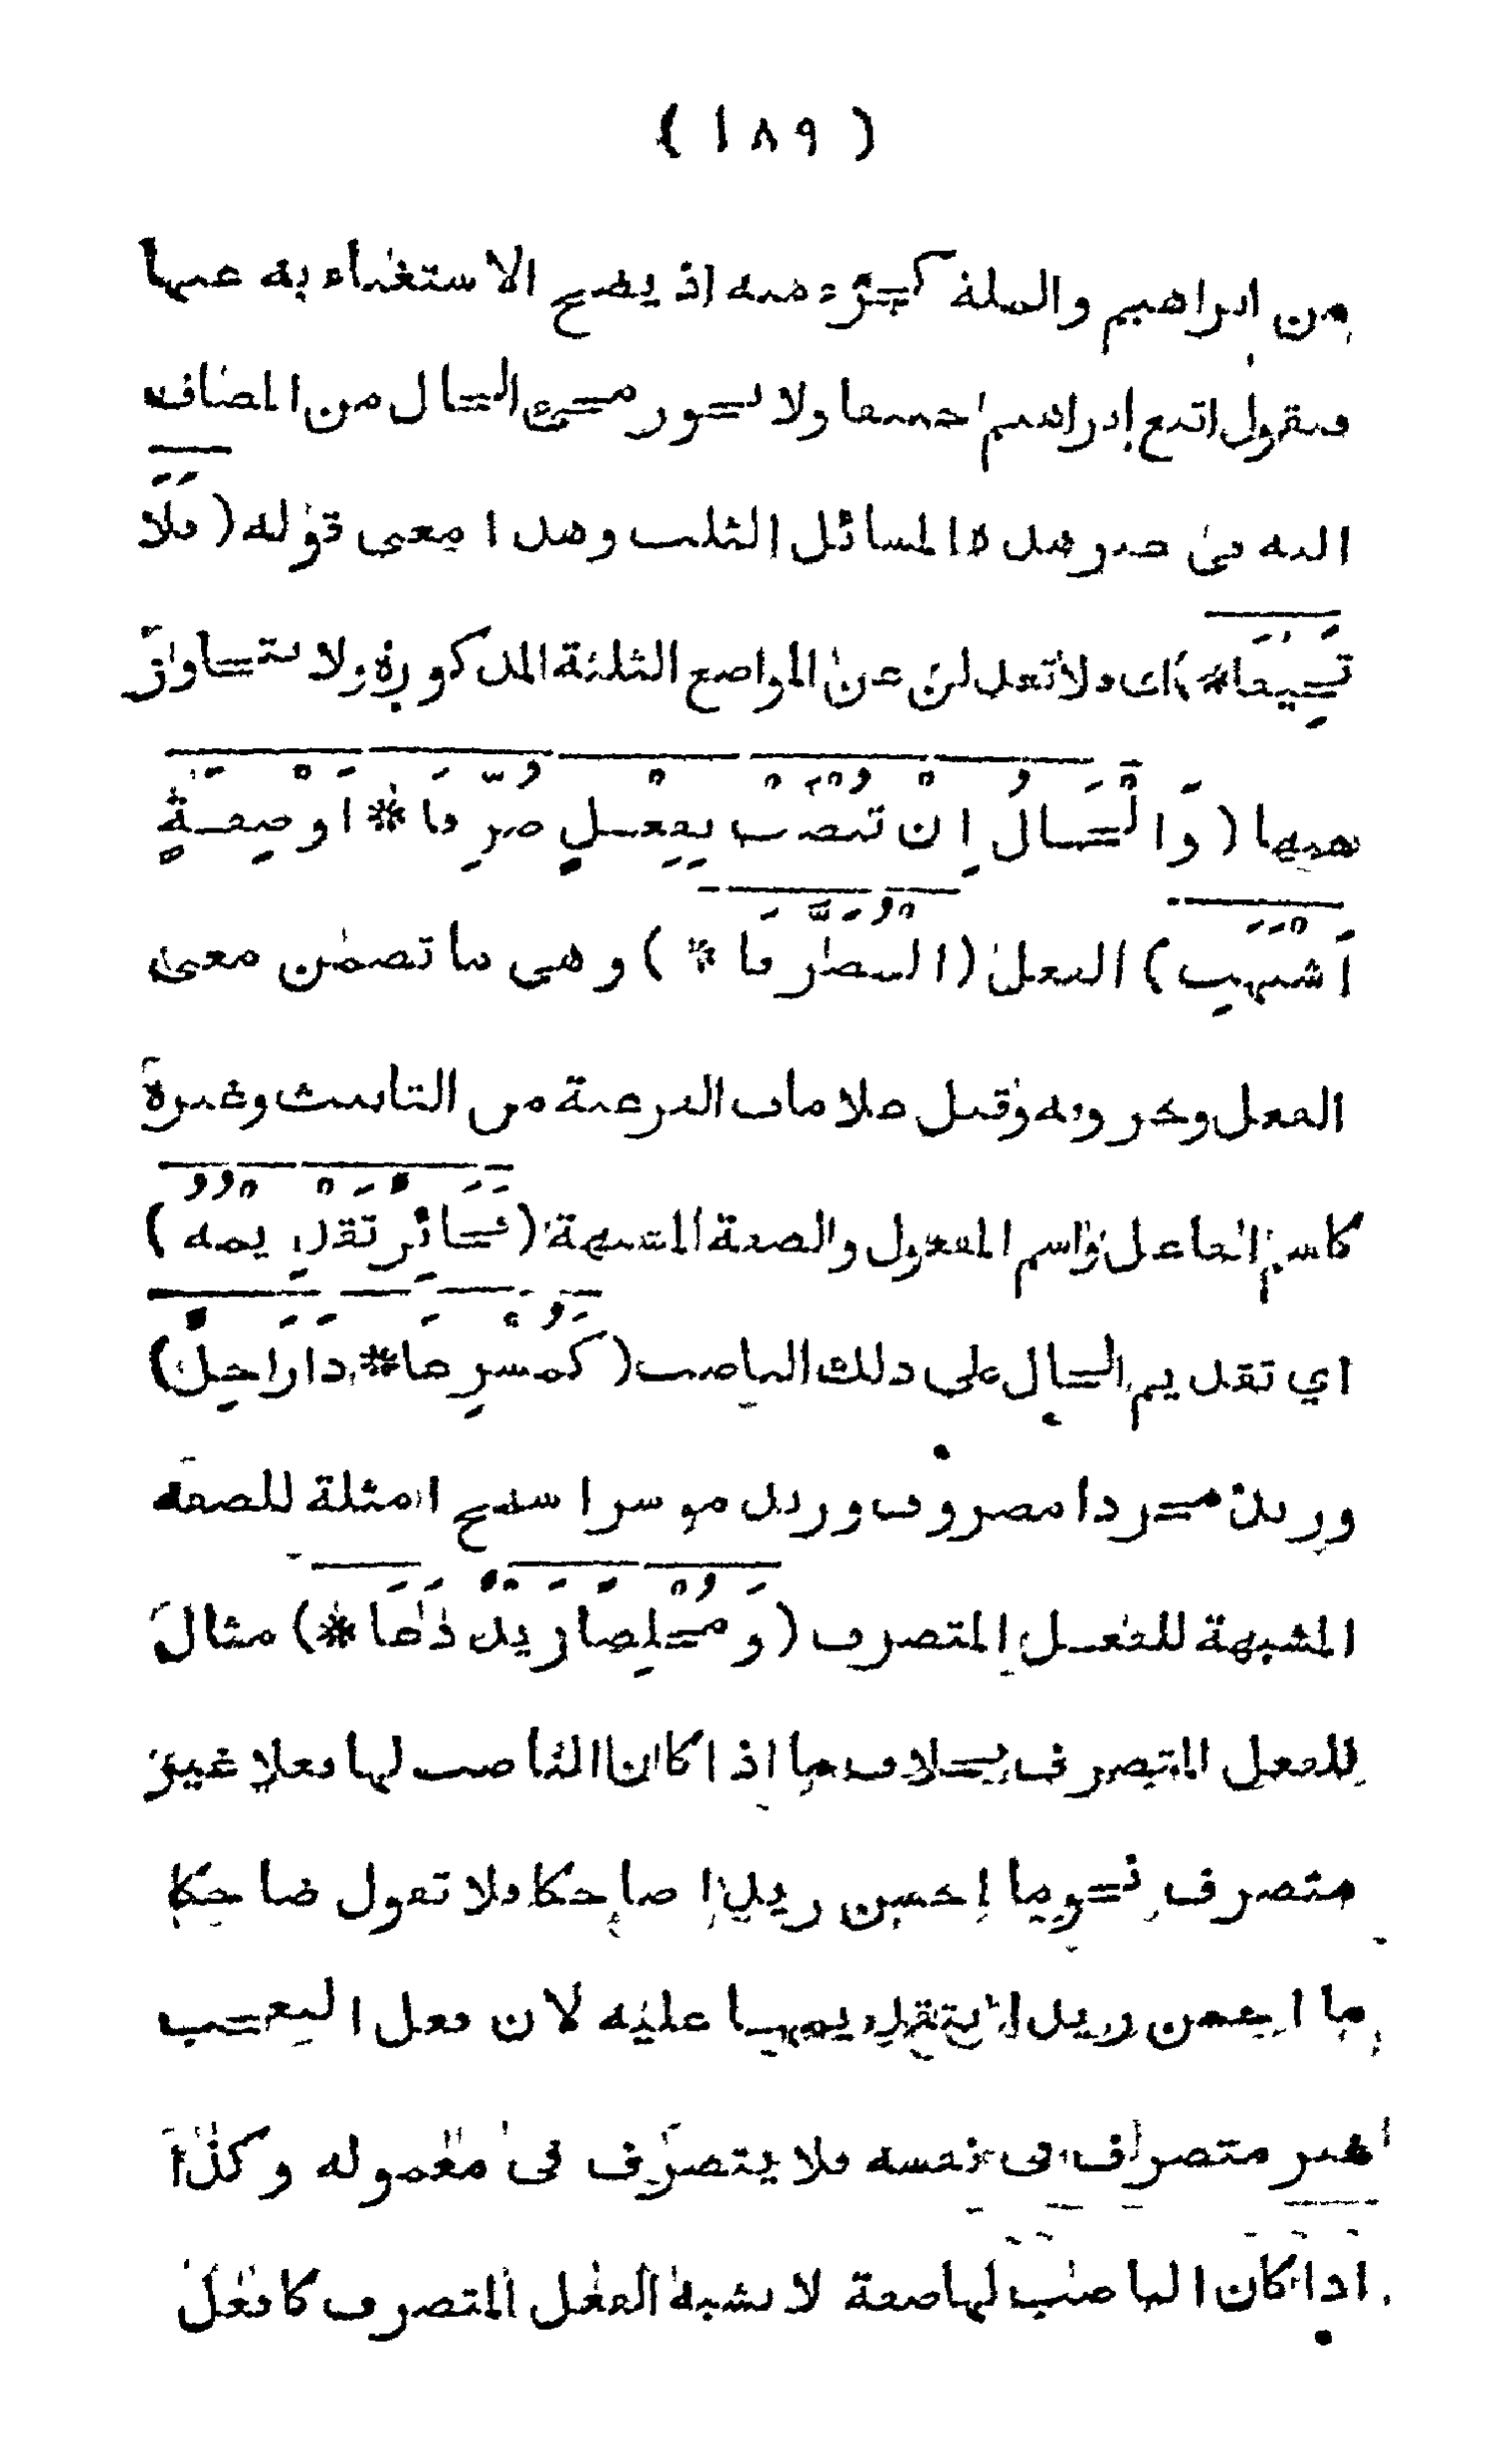 ( ١٨٩ )
من ابراهيم والملة كجزء منه اذ يصح الاستغناء به عنها
فنقول اتبع ابراهيم حنيفا ولا يجوز مجيء الحال من المضاف
اليه في غير هذه المسائل الثلث وهذا معنى قوله ( فَلَا
تَحِيْفَا * ) اى فلا تعدلن عن المواضع الثلثة المذكورة ولا تتجاوز
منها ( وَالْحَالُ اِنْ تُنْصَبْ بِفِعْلٍ صُرِّفَا * اَوْ صِفَةٍ
اَشْبَهَتِ ) الفعل ( الْمُصَرَّفَا * ) وهى ما تضمن معنى
الفعل وحروفه وقبل علامات الفرعية من التانيث وغيره
كاسم الفاعل واسم المفعول والصفة المشبهة ( فَجَائِزٌ تَقْدِيْمُهُ )
اي تقديم الحال على ذلك الناصب ( كَمُسْرِعًا * ذَا رَاحِلٌ )
وزيد مجردا مضروب وزيد موسرا سمح امثلة للصفة
المشبهة للفعل المتصرف ( وَ مُخْلِصًا زَيْدٌ دَعَا * ) مثال
للفعل المتصرف بخلاف ما اذا كان الناصب لها فعلا غير
متصرف نحو ما احسن زيدا ضاحكا فلا تقول ضاحكا
ما احسن زيدا بتقديمها عليه لان فعل التعجب
غير متصرف في نفسه فلا يتصرف في معموله وكذا
اذا كان الناصب لها صفة لا تشبه الفعل المتصرف كافعل